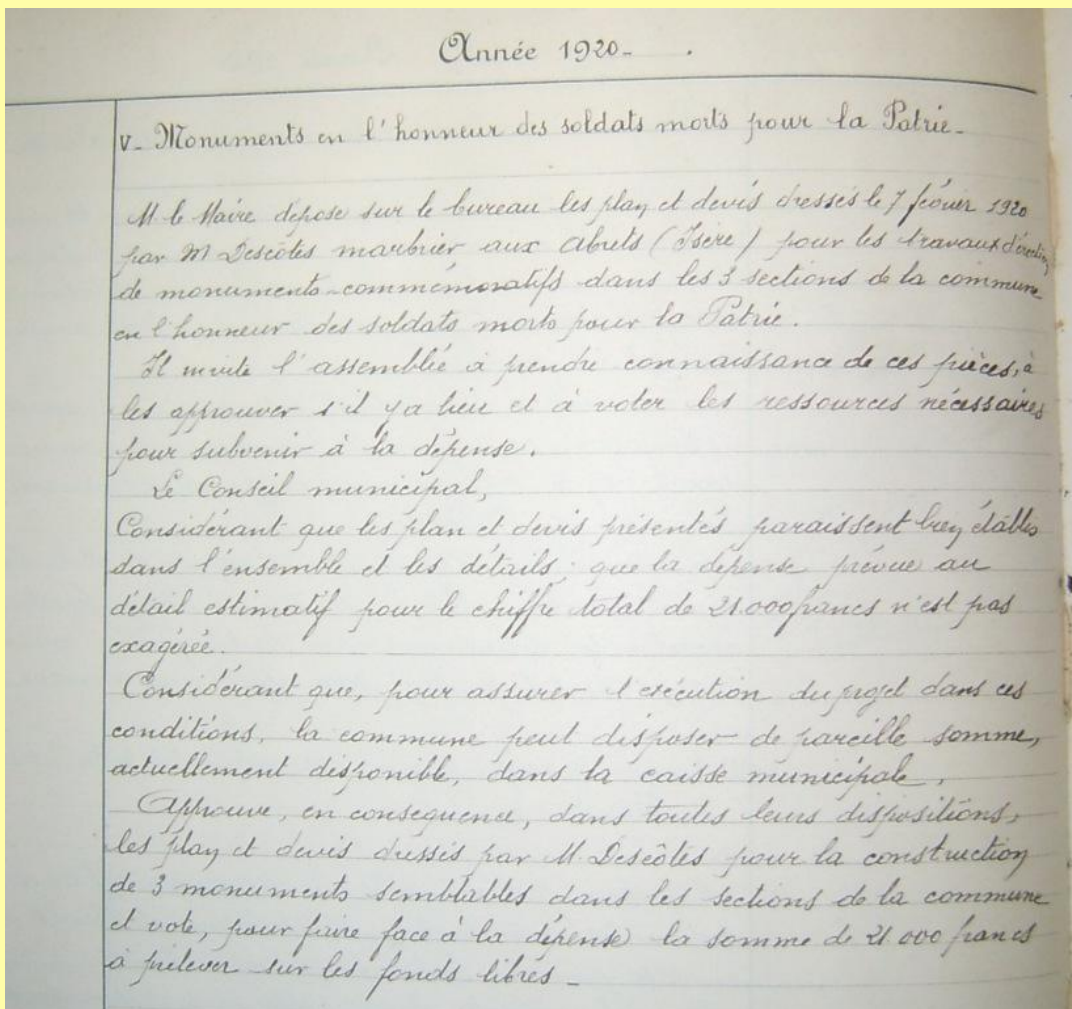 Année 1920_ .
V_ Monuments en l'honneur des soldats morts pour la Patrie_
M le Maire dépose sur le bureau les plan et devis dressés le 7 février 1920
par M Descôtes marbrier aux Abrets (Isère) pour les travaux d'érection
de monuments commémoratifs dans les 3 sections de la commune
en l'honneur des soldats morts pour la Patrie.
Il invite l'assemblée à prendre connaissance de ces pièces, à
les approuver s'il y a lieu et à voter les ressources nécessaires
pour subvenir à la dépense.
Le Conseil municipal,
Considérant que les plan et devis présentés paraissent bien établis
dans l'ensemble et les détails; que la dépense prévue au
détail estimatif pour le chiffre total de 21.000 francs n'est pas
exagérée.
Considérant que, pour assurer l'exécution du projet dans ces
conditions, la commune peut disposer de pareille somme,
actuellement disponible, dans la caisse municipale.
Approuve, en conséquence, dans toutes leurs dispositions,
les plan et devis dressés par M. Descôtes pour la construction
de 3 monuments semblables dans les sections de la commune
et vote, pour faire face à la dépense la somme de 21 000 francs
à prélever sur les fonds libres_